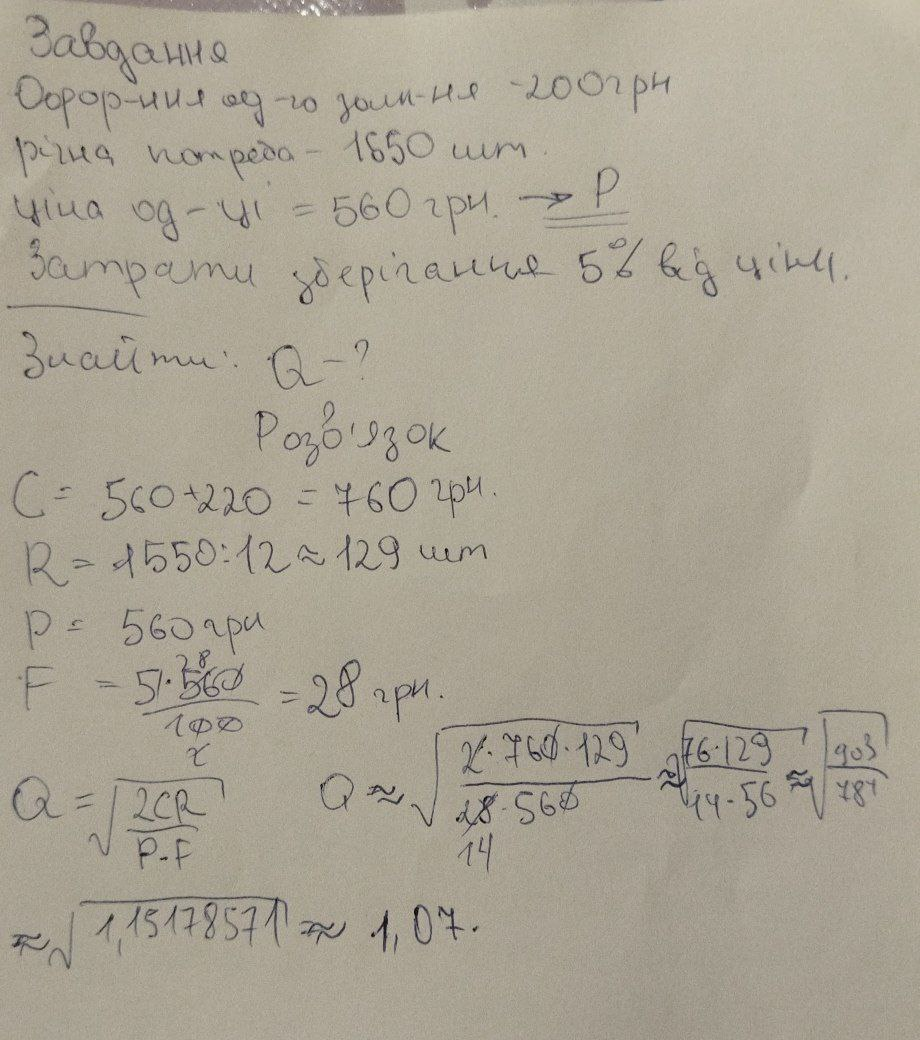 Завдання
Оформ-ння од-го замл-ня -200грн
річна потреба - 1550 шт.
ціна од-ці = 560 грн. → P
Затрати зберігання 5% від ціни.
Знайти: Q - ?
Розв'язок
C = 560+220 = 760 грн.
R = 1550:12 ≈ 129 шт
P = 560 грн
F = 5·560/100 = 28 грн.
28
2
Q = √(2CR/P·F) Q ≈ √(2·760·129/28·560) ≈ √(76·129/14·56) ≈ √(903/784)
14
≈ √1,15178571 ≈ 1,07.